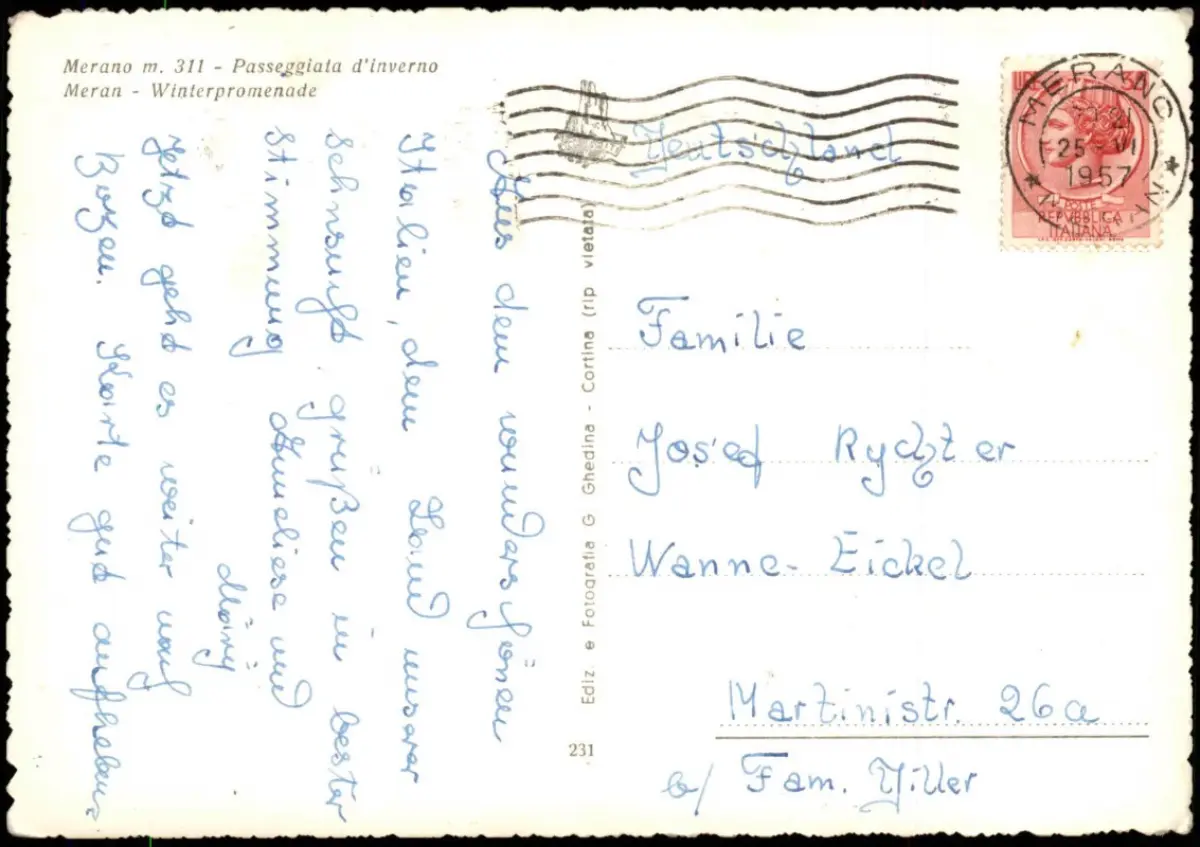 Merano m. 311 - Passeggiata d'inverno
Meran - Winterpromenade
Aus dem wunderschönen
Italien, dem Land unserer
Sehnsucht grüßen in bester
Stimmung Anneliese und
Jetzt geht es weiter nach
Bozen. Karte gut aufheben.
Ediz. e Fotografia G Ghedina - Cortina (rip vietata)
231
Deutschland
MERANO
25 VI
1957
POSTE
REPVBBLICA
ITALIANA
Familie
Josef Rychter
Wanne-Eickel
Martinistr. 26a
b/ Fam.